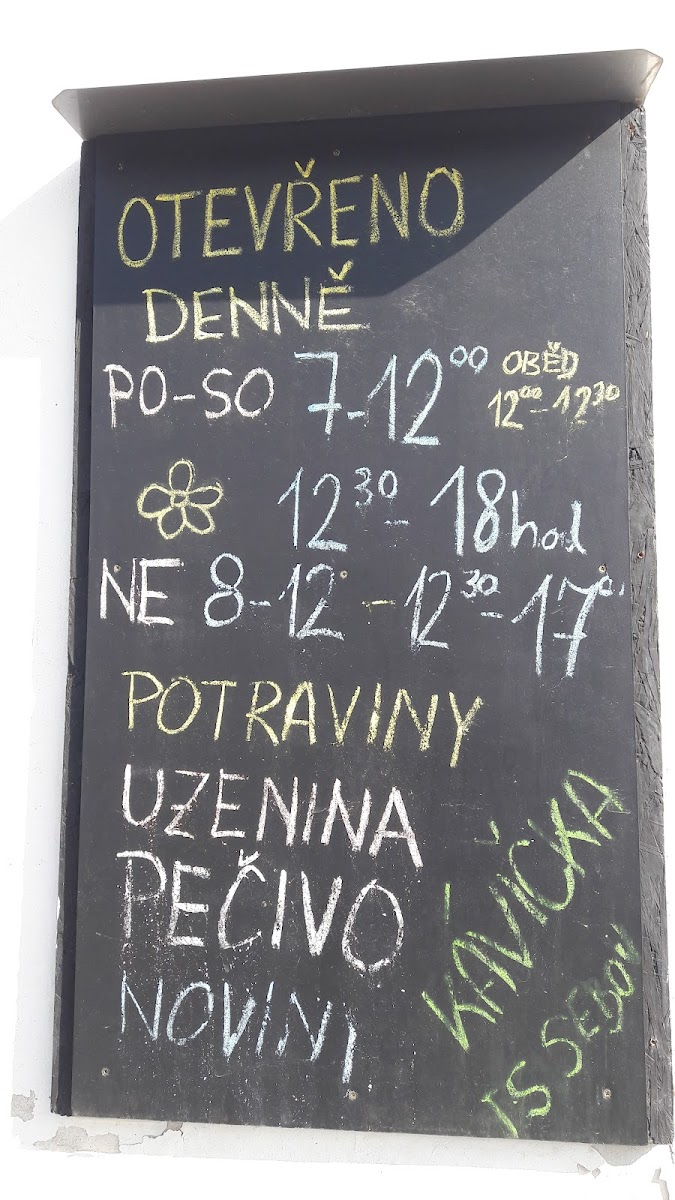 OTEVŘENO
DENNĚ
PO-SO 7-12⁰⁰ OBĚD
12⁰⁰-12³⁰
12³⁰- 18hod
NE 8-12 - 12³⁰-17⁰
POTRAVINY
UZENINA
PEČIVO
NOVINY
KÁVIČKA
IS SEBOU